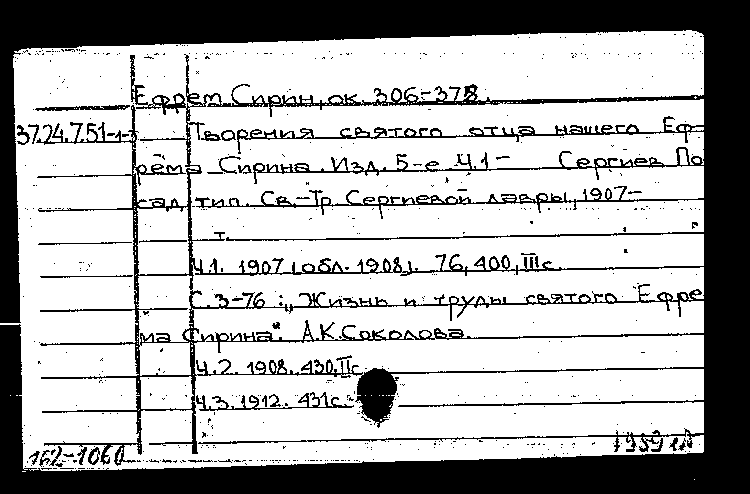 Ефрем Сирин, ок. 306-378.
37.24.7.51-1-3 Творения святого отца нашего Еф-
рема Сирина. Изд. 5-е. Ч.1- Сергиев По-
сад, тип. Св.-Тр. Сергиевой лавры, 1907-
т.
Ч.1. 1907 [обл. 1908]. 76, 400, III с.
С. 3-76: „Жизнь и труды святого Ефре
ма Сирина". А.К.Соколова.
Ч.2. 1908. 430, II с.
Ч.3. 1912. 431 с.
162-1060